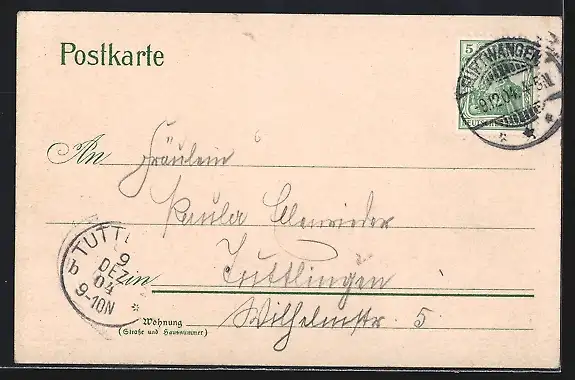 Postkarte
5
FURTWANGEN
9.12.04. 4-5N
DEUTSCHES
An Fräulein
Paula Ellenrieder
in Tuttlingen
TUTTL
9
DEZ
04
9-10N
b
Wohnung
(Straße und Hausnummer)
Wilhelmstr. 5